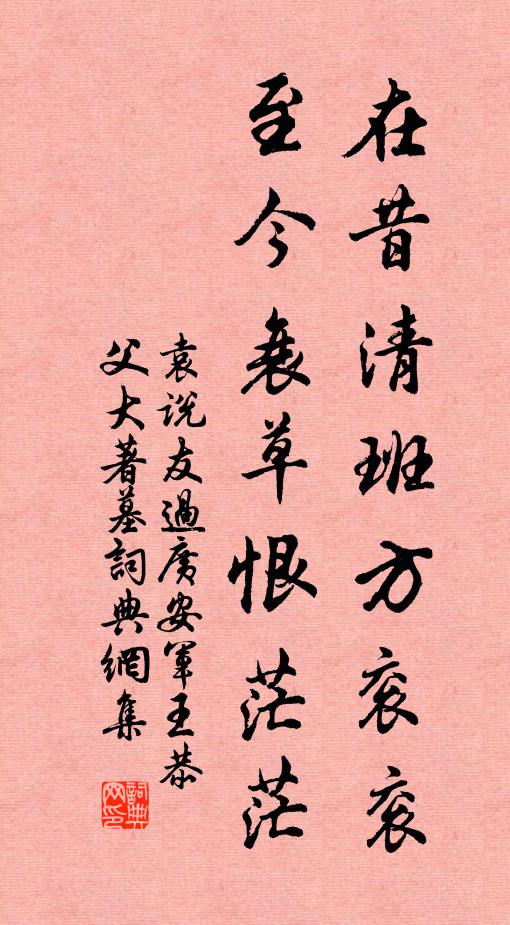 在昔清班方衮衮
至今衰草恨茫茫
袁说友過廣安軍王恭
父大著墓詞典網集
詞典网印